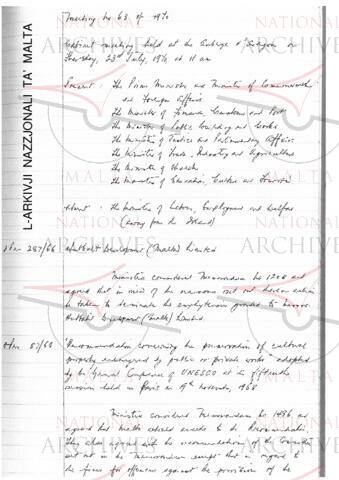 Meeting No 63 of 1970
Cabinet meeting held at the Auberge d'Aragon on
Thursday, 23rd July, 1970, at 11 am
Present: The Prime Minister and Minister of Commonwealth
and Foreign Affairs
The Minister of Finance, Customs and Port
The Minister of Public Building and Works
The Minister of Justice and Parliamentary Affairs
The Minister of Trade, Industry and Agriculture
The Minister of Health
The Minister of Education, Culture and Tourism
Absent: The Minister of Labour, Employment and Welfare
(away from the Island)
287/66 Development (Malta) Limited
Ministers considered Memorandum No 1208 and
agreed that in view of the reasons set out therein action
be taken to terminate the emphyteusis granted to Messrs
Development (Malta) Limited.
52/68 Recommendation concerning the preservation of cultural
property endangered by public or private works adopted
by the General Conference of UNESCO at its fifteenth
session held in Paris on 19th November, 1968
Ministers considered Memorandum No 1496 and
agreed that Malta should accede to the Recommendation.
They also agreed with the recommendations of the Committee
set out in the Memorandum except that in regard to
the fines for offences against the provisions of the
L-ARKIVJI NAZZJONALI TA' MALTA
NATIONAL
ARCHIVES
MALTA